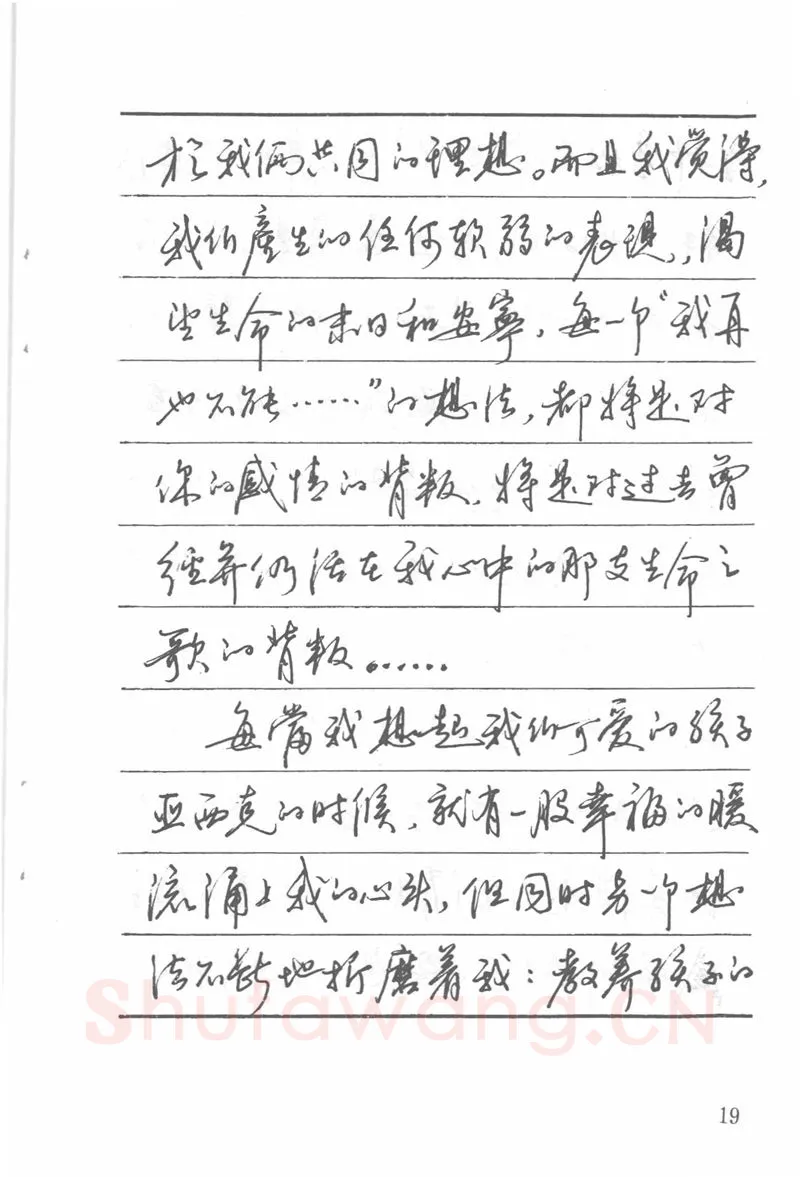 於我俩共同的理想。而且我觉得,
我们產生的任何软弱的表现,渴
望生命的末日和安寧,每一个“我再
也不能……”的想法,都将是对
你的感情的背叛,将是对过去曾
經并仍活在我心中的那支生命之
歌的背叛……
每當我想起我们可爱的孩子
亚西克的时候,就有一股幸福的暖
流涌上我的心头,但同时另一个想
法不断地折磨着我:教养孩子的
Shufawang.CN
19